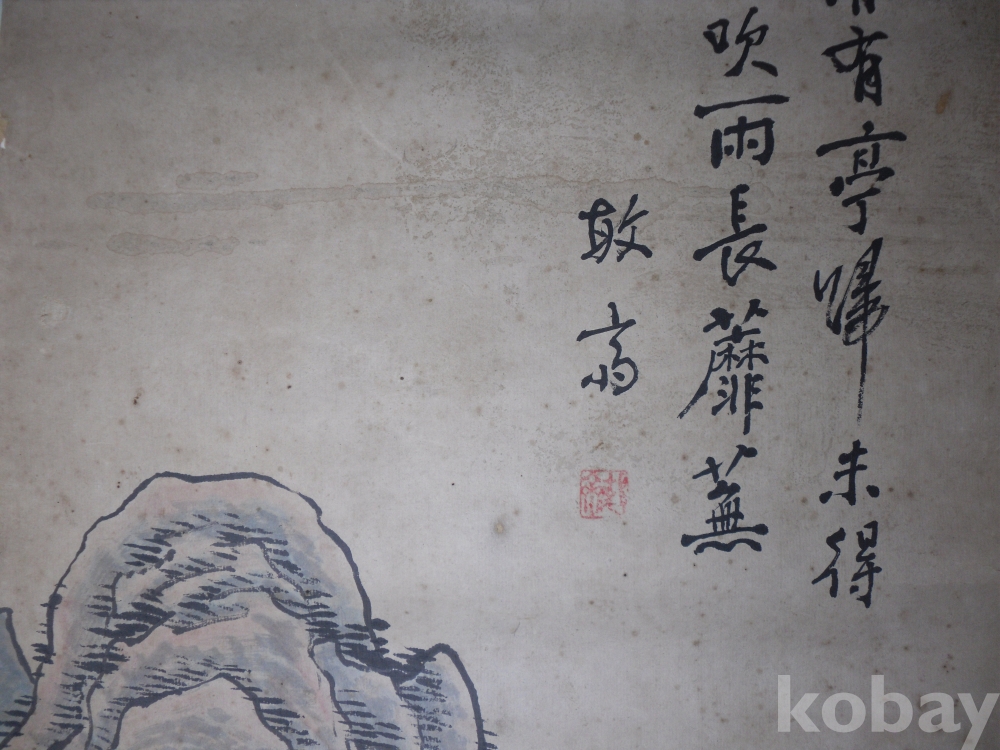 有亭歸未得
吹雨長蘼蕪
敢翁
kobay